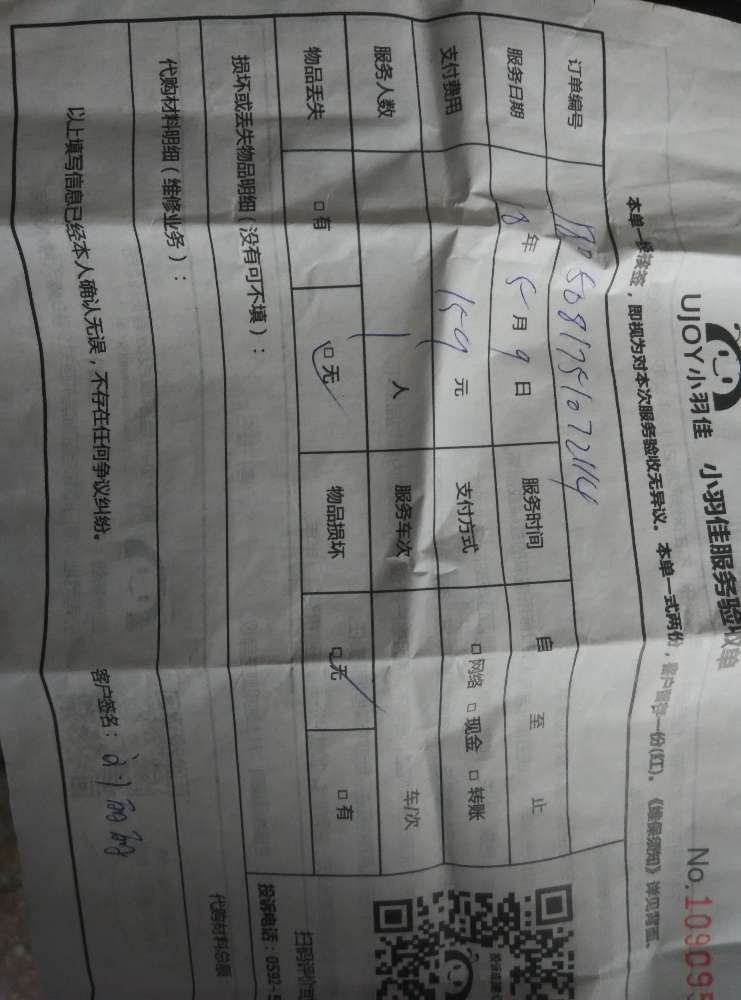 UJOY小羽佳 小羽佳服务验收单
No.109095
本单一经签, 即视为对本次服务验收无异议。本单一式两份, 客户留存一份(红)。《维保须知》详见背面。
订单编号
服务日期 18年5月9日 服务时间 自 至 止
支付费用 159元 支付方式 □网络 □现金 □转账
服务人数 1人 服务车次 车/次
物品丢失 □有 □无 物品损坏 □无 □有
损坏或丢失物品明细(没有可不填):
代购材料明细(维修业务):
代购材料总额
以上填写信息已经本人确认无误, 不存在任何争议纠纷。
客户签名:
扫码评价
投诉电话: 0592-5